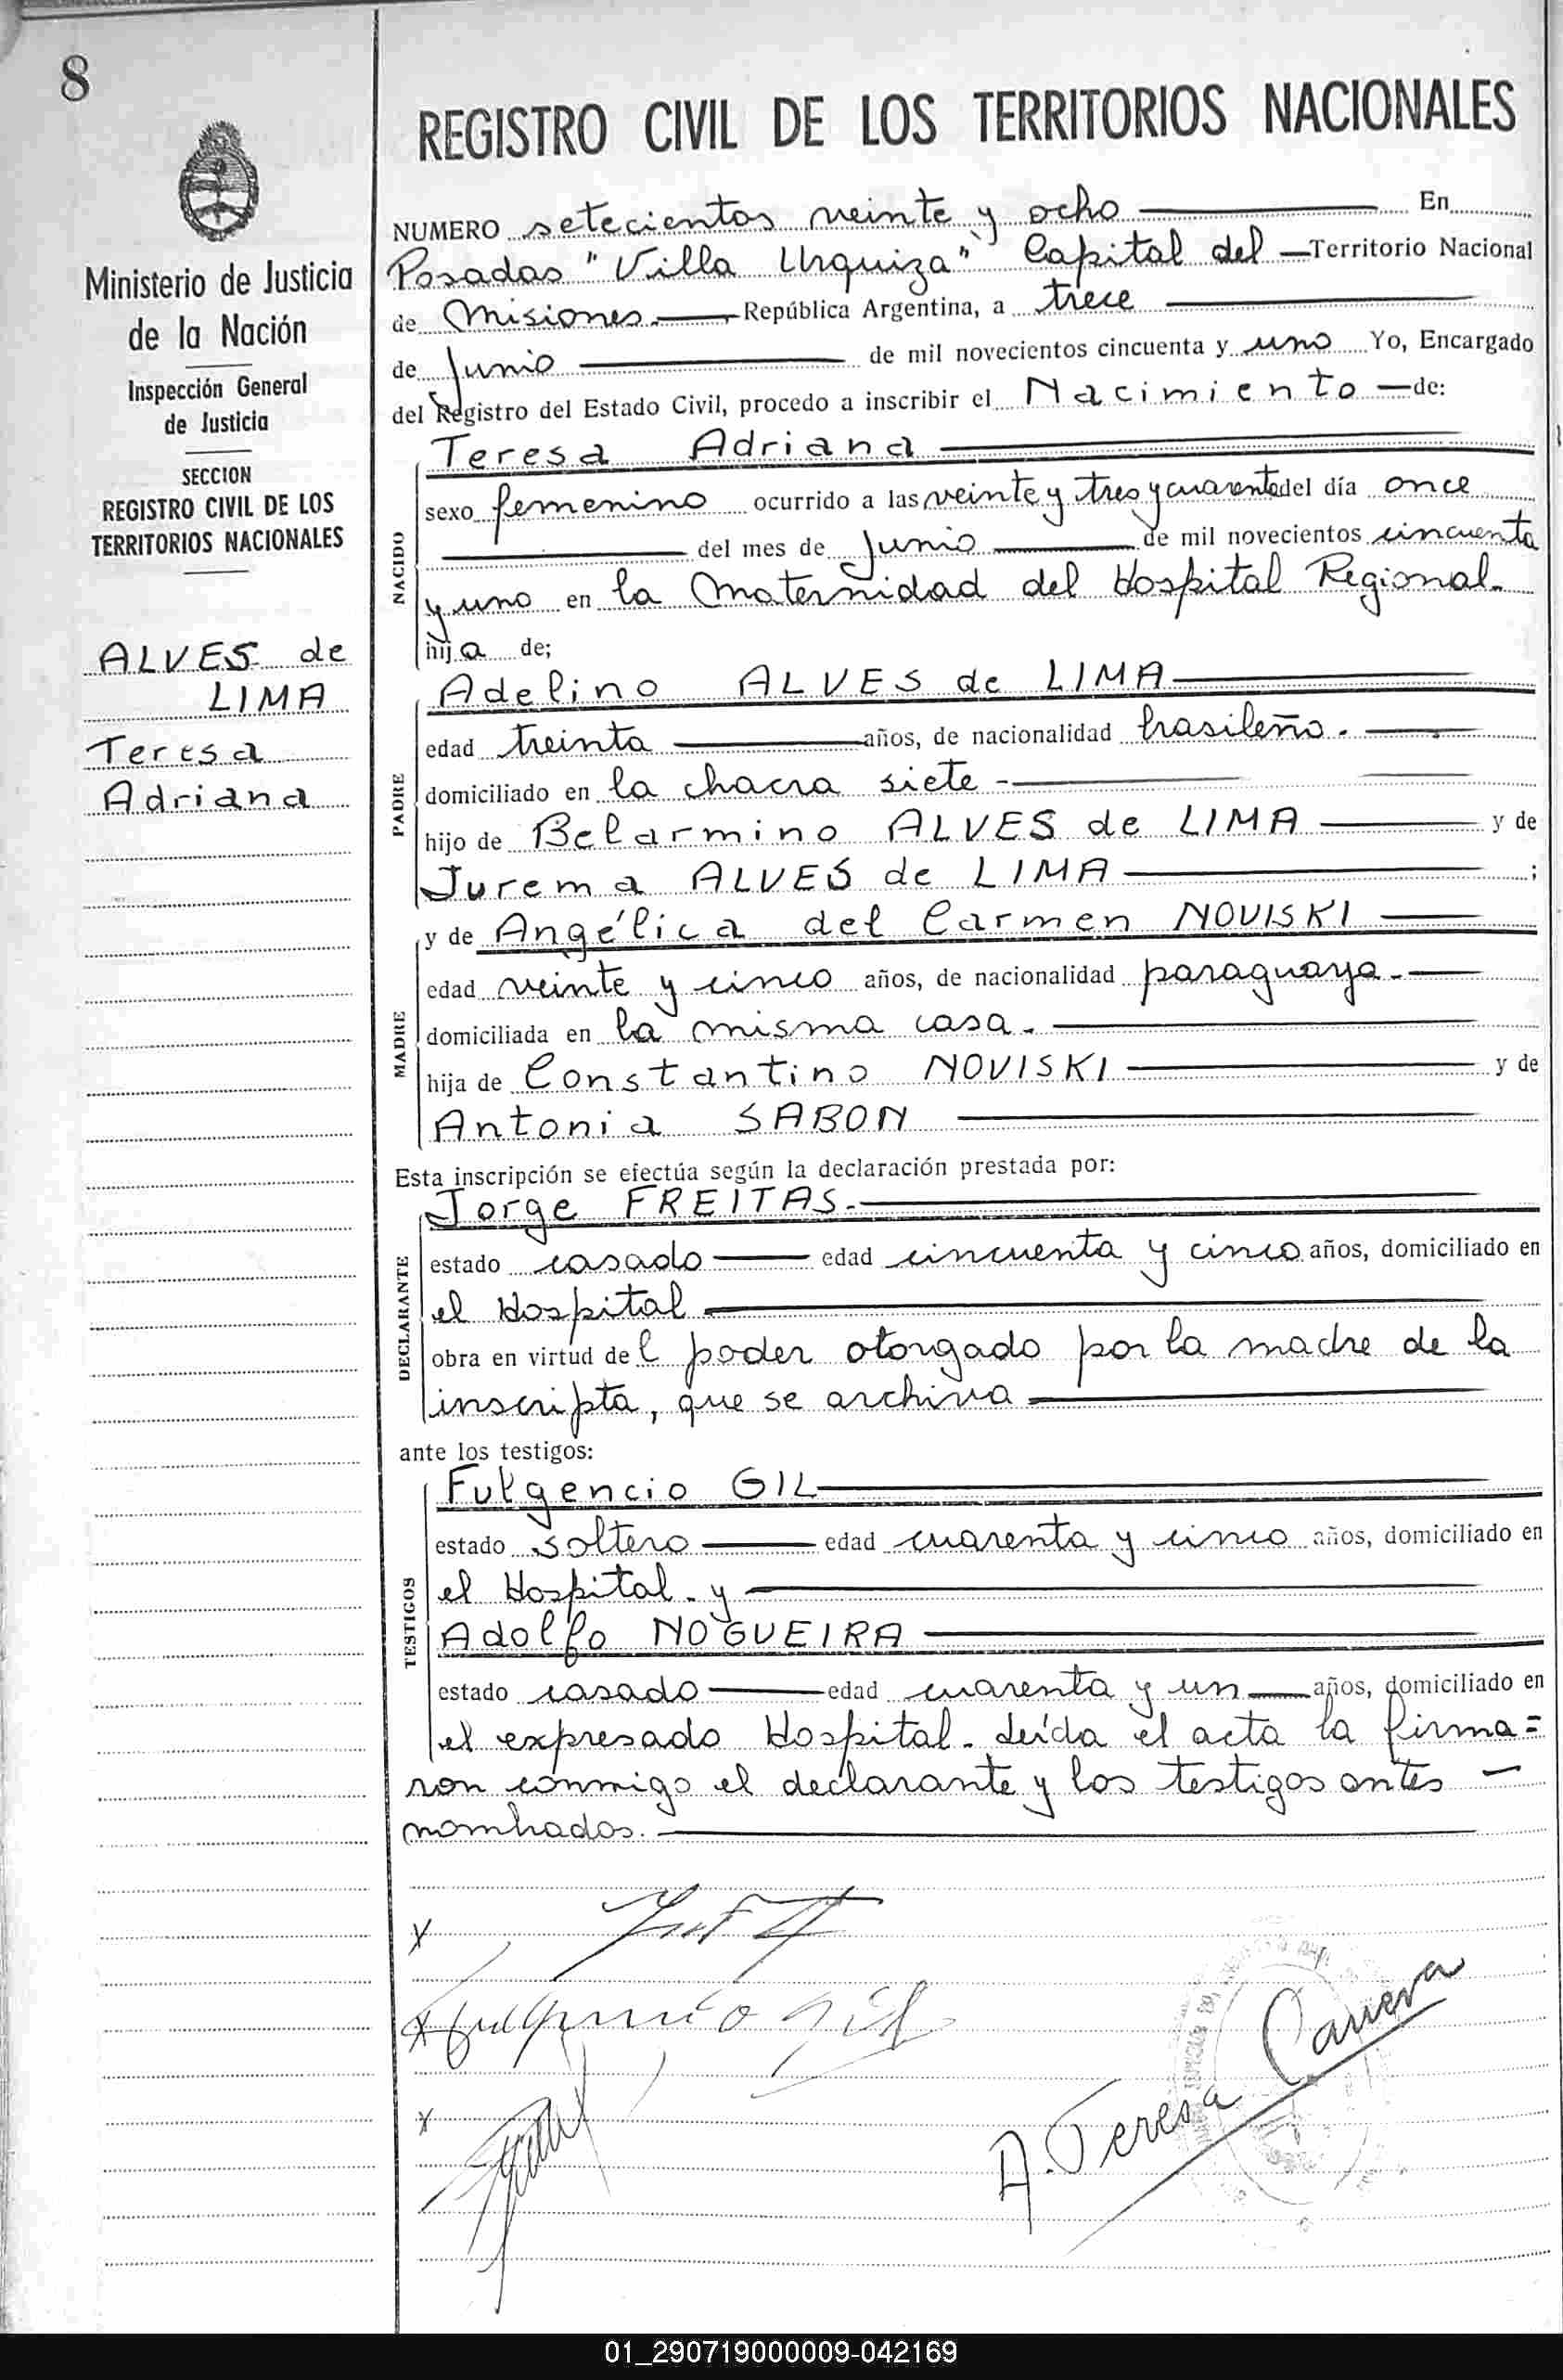 8
Ministerio de Justicia
de la Nación
Inspección General
de Justicia
SECCION
REGISTRO CIVIL DE LOS
TERRITORIOS NACIONALES
ALVES de
LIMA
Teresa
Adriana
REGISTRO CIVIL DE LOS TERRITORIOS NACIONALES
NUMERO setecientos veinte y ocho En
Posadas "Villa Urquiza" Capital del Territorio Nacional
de Misiones. República Argentina, a trece
de Junio de mil novecientos cincuenta y uno Yo, Encargado
del Registro del Estado Civil, procedo a inscribir el Nacimiento de:
NACIDO
Teresa Adriana
sexo femenino ocurrido a las veinte y tres y cuarenta del día once
del mes de Junio de mil novecientos cincuenta
y uno en la Maternidad del Hospital Regional.
hija de;
PADRE
Adelino ALVES de LIMA
edad treinta años, de nacionalidad brasileño.
domiciliado en la chacra siete -
hijo de Belarmino ALVES de LIMA y de
Jurema ALVES de LIMA ;
MADRE
y de Angélica del Carmen NOVISKI
edad veinte y cinco años, de nacionalidad paraguaya.
domiciliada en la misma casa.
hija de Constantino NOVISKI y de
Antonia SABON
Esta inscripción se efectúa según la declaración prestada por:
DECLARANTE
Jorge FREITAS.
estado casado edad cincuenta y cinco años, domiciliado en
el Hospital
obra en virtud del poder otorgado por la madre de la
inscripta, que se archiva
ante los testigos:
TESTIGOS
Fulgencio GIL
estado soltero edad cuarenta y cinco años, domiciliado en
el Hospital. y
Adolfo NOGUEIRA
estado casado edad cuarenta y un años, domiciliado en
el expresado Hospital. Leída el acta la firma=
ron conmigo el declarante y los testigos antes
nombrados.
x
x Fulgencio Gil
x
A. Teresa Carrera
01_290719000009-042169